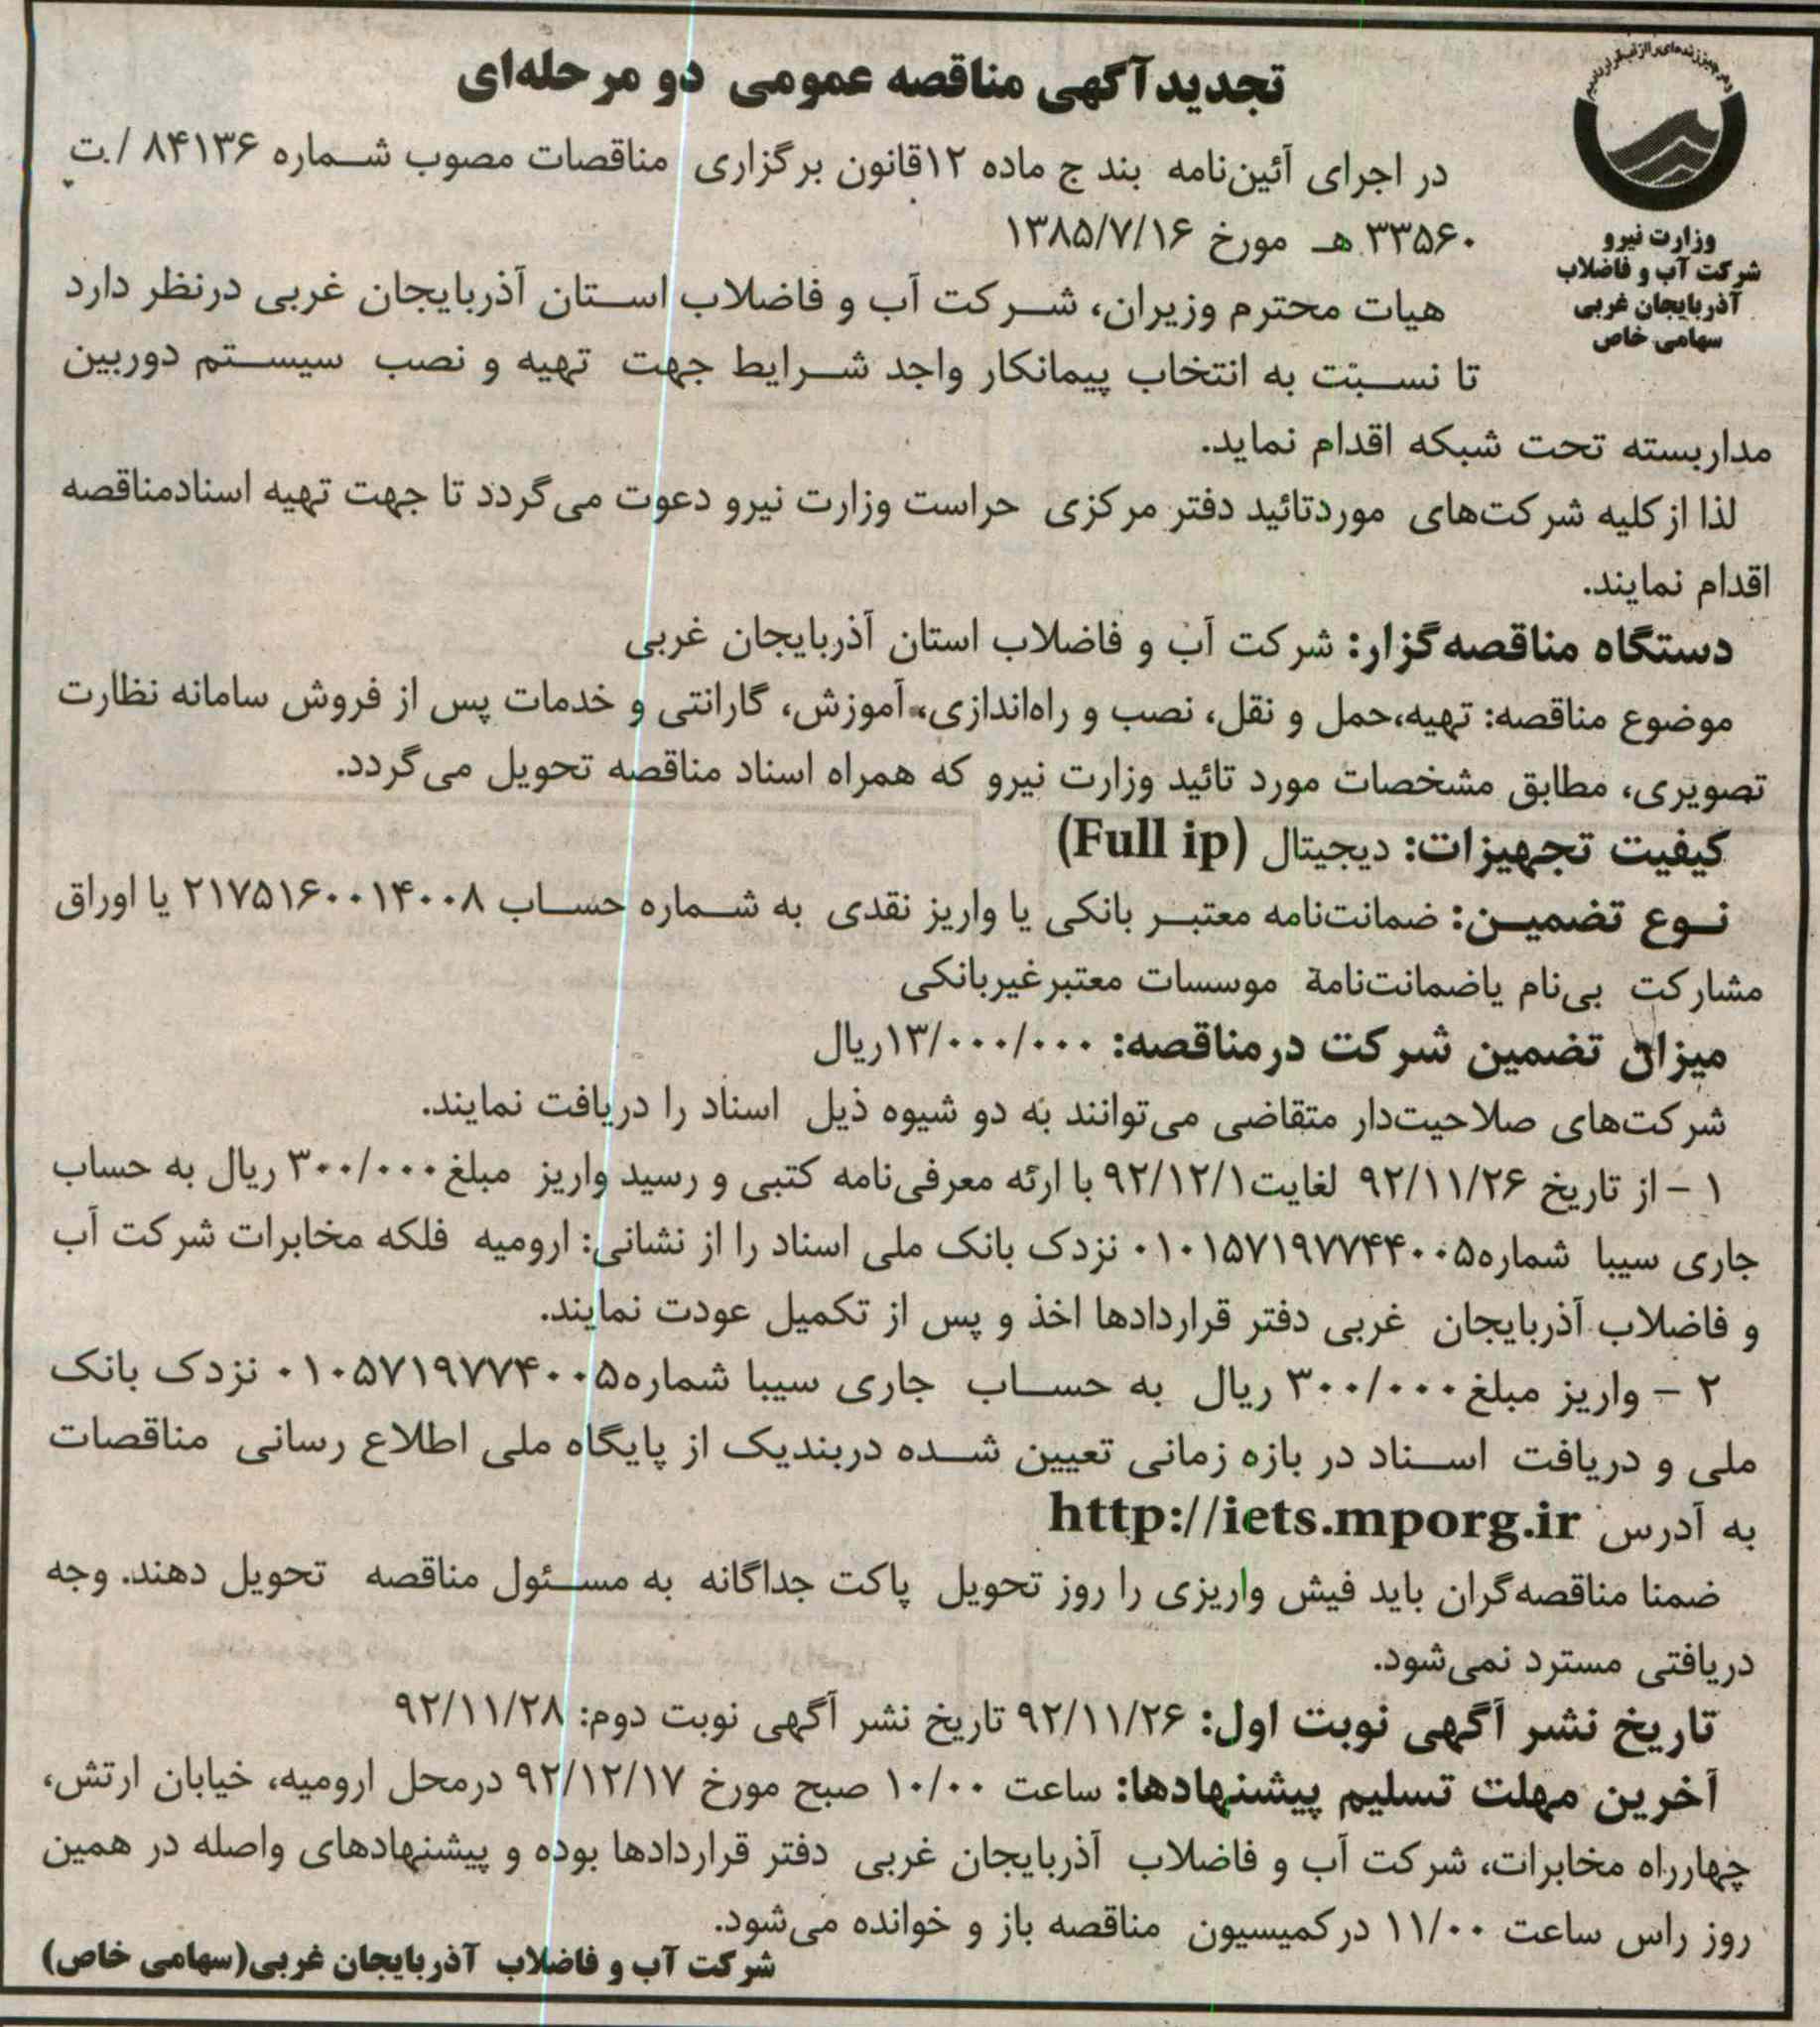 تجدیدآگهی مناقصه عمومی دو مرحله‌ای
وزارت نیرو
شرکت آب و فاضلاب
آذربایجان غربی
سهامی خاص
در اجرای آئین‌نامه بند ج ماده ۱۲قانون برگزاری مناقصات مصوب شماره ۸۴۱۳۶ /ت
۳۳۵۶۰ هـ مورخ ۱۳۸۵/۷/۱۶
هیات محترم وزیران، شرکت آب و فاضلاب استان آذربایجان غربی درنظر دارد
تا نسبت به انتخاب پیمانکار واجد شرایط جهت تهیه و نصب سیستم دوربین
مداربسته تحت شبکه اقدام نماید.
لذا از کلیه شرکت‌های موردتائید دفتر مرکزی حراست وزارت نیرو دعوت می‌گردد تا جهت تهیه اسنادمناقصه
اقدام نمایند.
دستگاه مناقصه‌گزار: شرکت آب و فاضلاب استان آذربایجان غربی
موضوع مناقصه: تهیه،حمل و نقل، نصب و راه‌اندازی، آموزش، گارانتی و خدمات پس از فروش سامانه نظارت
تصویری، مطابق مشخصات مورد تائید وزارت نیرو که همراه اسناد مناقصه تحویل می‌گردد.
کیفیت تجهیزات: دیجیتال (Full ip)
نوع تضمین: ضمانت‌نامه معتبر بانکی یا واریز نقدی به شماره حساب ۲۱۷۵۱۶۰۰۱۴۰۰۸ یا اوراق
مشارکت بی‌نام یاضمانت‌نامة موسسات معتبرغیربانکی
میزان تضمین شرکت درمناقصه: ۱۳/۰۰۰/۰۰۰ریال
شرکت‌های صلاحیت‌دار متقاضی می‌توانند به دو شیوه ذیل اسناد را دریافت نمایند.
۱ – از تاریخ ۹۲/۱۱/۲۶ لغایت۹۲/۱۲/۱ با ارئه معرفی‌نامه کتبی و رسید واریز مبلغ۳۰۰/۰۰۰ ریال به حساب
جاری سیبا شماره۰۱۰۱۵۷۱۹۷۷۴۴۰۰۵ نزدک بانک ملی اسناد را از نشانی: ارومیه فلکه مخابرات شرکت آب
و فاضلاب آذربایجان غربی دفتر قراردادها اخذ و پس از تکمیل عودت نمایند.
۲ – واریز مبلغ۳۰۰/۰۰۰ ریال به حساب جاری سیبا شماره۰۱۰۵۷۱۹۷۷۴۰۰۵ نزدک بانک
ملی و دریافت اسناد در بازه زمانی تعیین شده دربندیک از پایگاه ملی اطلاع رسانی مناقصات
به آدرس http://iets.mporg.ir
ضمنا مناقصه‌گران باید فیش واریزی را روز تحویل پاکت جداگانه به مسئول مناقصه تحویل دهند. وجه
دریافتی مسترد نمی‌شود.
تاریخ نشر آگهی نوبت اول: ۹۲/۱۱/۲۶ تاریخ نشر آگهی نوبت دوم: ۹۲/۱۱/۲۸
آخرین مهلت تسلیم پیشنهادها: ساعت ۱۰/۰۰ صبح مورخ ۹۲/۱۲/۱۷ درمحل ارومیه، خیابان ارتش،
چهارراه مخابرات، شرکت آب و فاضلاب آذربایجان غربی دفتر قراردادها بوده و پیشنهادهای واصله در همین
روز راس ساعت ۱۱/۰۰ درکمیسیون مناقصه باز و خوانده می‌شود.
شرکت آب و فاضلاب آذربایجان غربی(سهامی خاص)